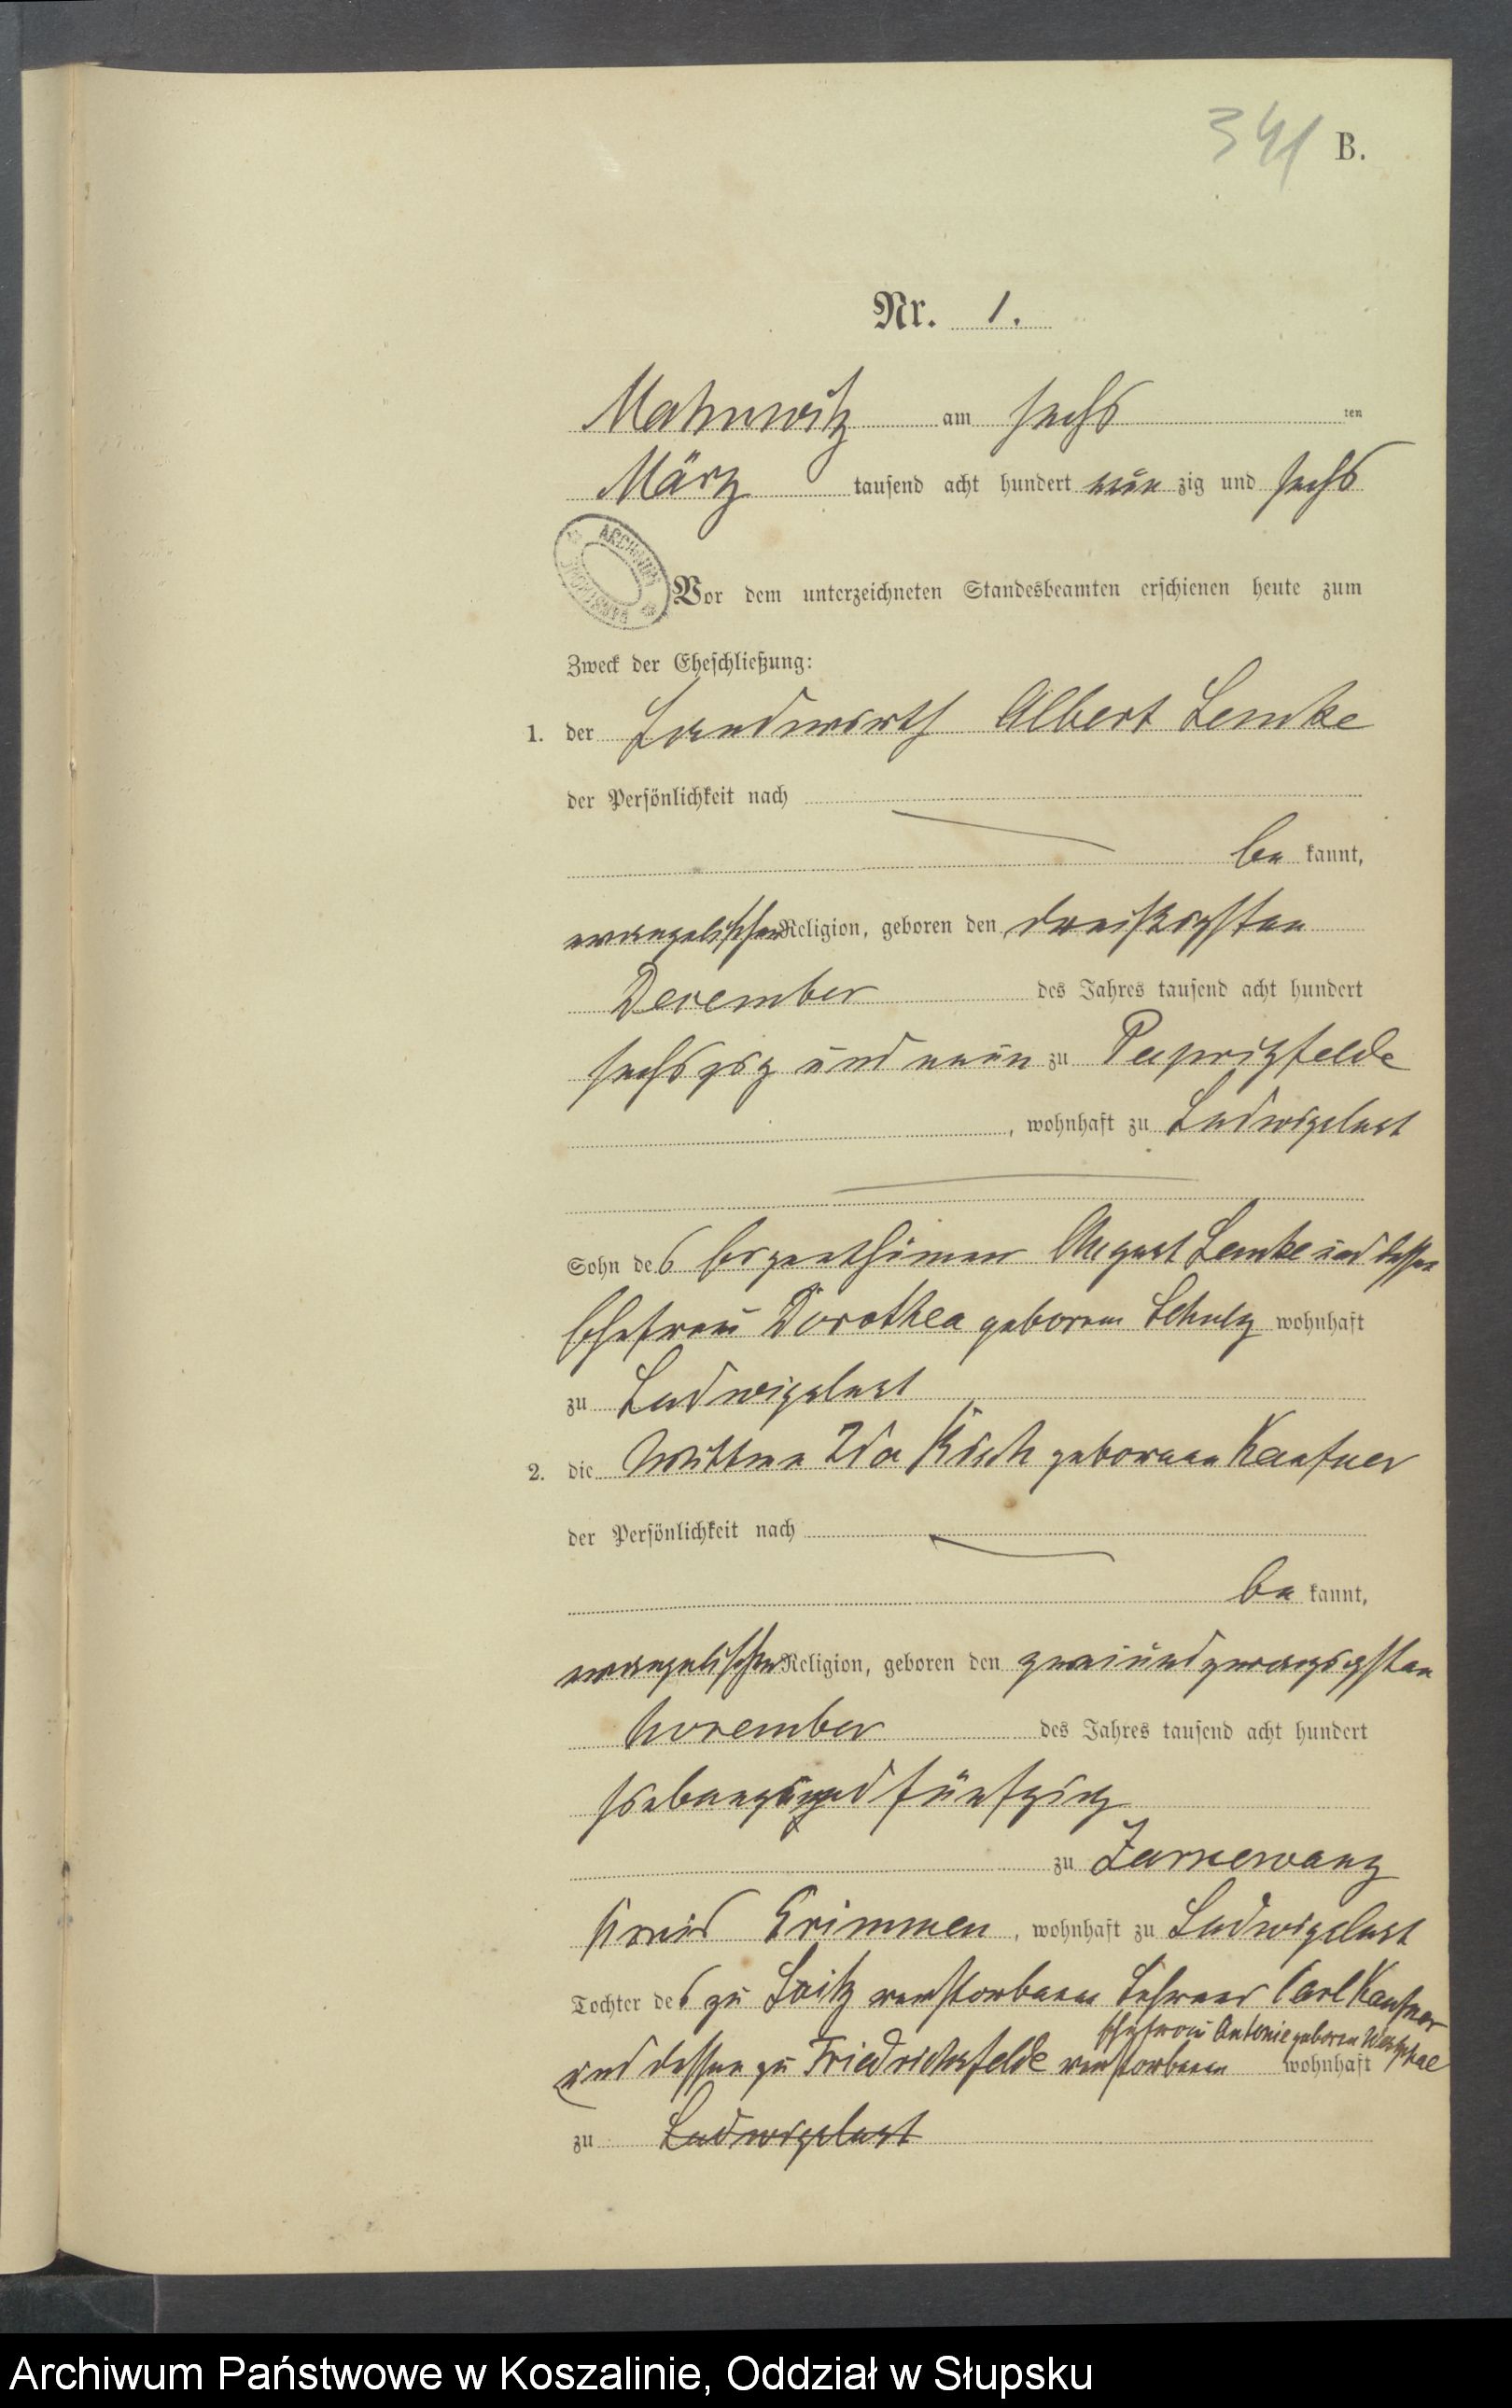 341 B.
Nr. 1.
Mahnwitz am sechs ten
März tausend acht hundert neun zig und sechs
ARCHIWUM PAŃSTWOWE
Vor dem unterzeichneten Standesbeamten erschienen heute zum
Zweck der Eheschließung:
1. der Landwirth Albert Lemke
der Persönlichkeit nach
be kannt,
evangelischer Religion, geboren den dreißigsten
December des Jahres tausend acht hundert
sechszig und neun zu Papritzfelde
, wohnhaft zu Ludwigslust
Sohn des Eigenthümer August Lemke und dessen
Ehefrau Dorothea geborene Schulz wohnhaft
zu Ludwigslust
2. die Wittwe Ida Kisch geborene Kaufner
der Persönlichkeit nach
be kannt,
evangelischer Religion, geboren den zweiundzwanzigsten
November des Jahres tausend acht hundert
und fünfzig
zu Zarnewanz
Kreis Grimmen, wohnhaft zu Ludwigslust
Tochter des zu Loitz verstorbenen Lehrers Carl Kaufner
Ehefrau Antonie geboren Westphal
und dessen zu Friedrichsfelde verstorbenen wohnhaft
zu Ludwigslust
Archiwum Państwowe w Koszalinie, Oddział w Słupsku